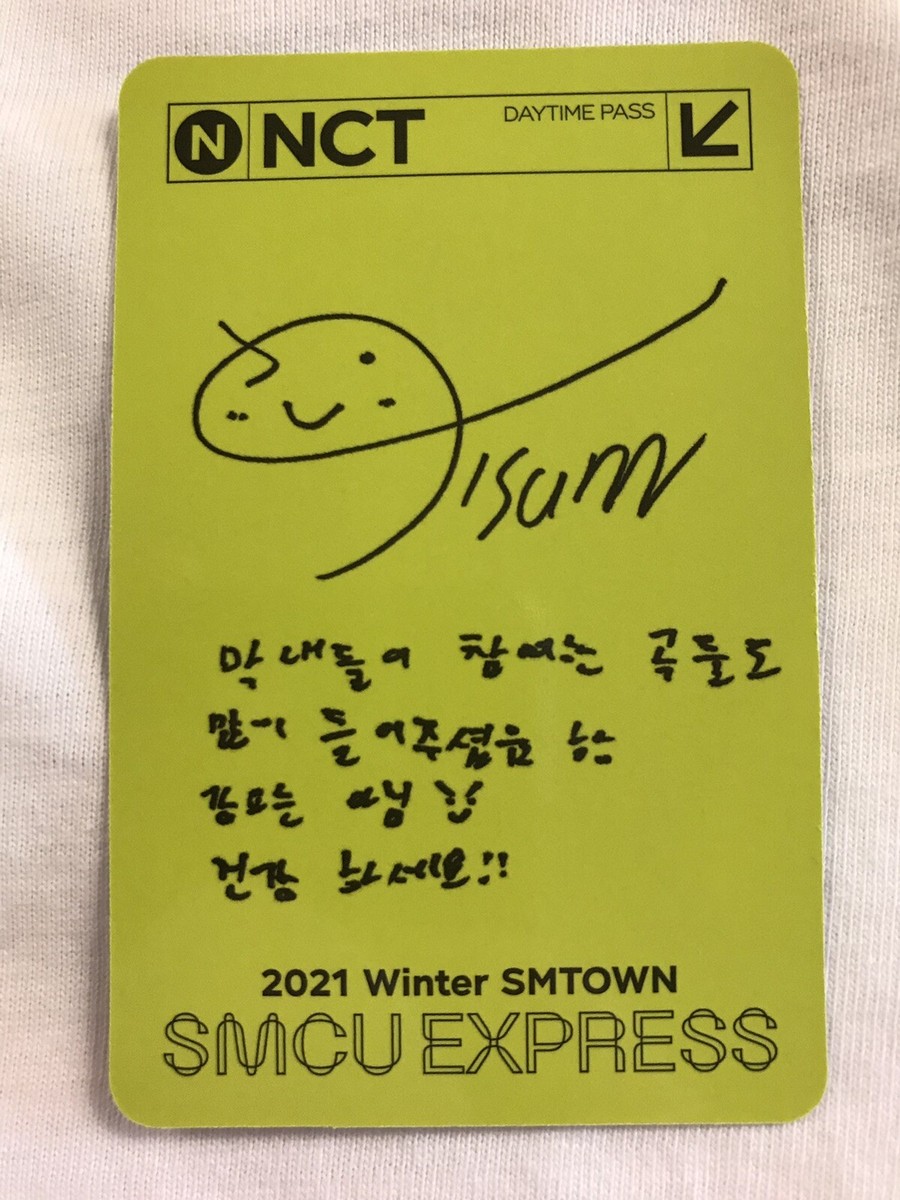 N NCT DAYTIME PASS
Jisung
막내들이 참여하는 곡들도
많이 들어주셨음 함
강요는 아님 !!
건강하세요!!
2021 Winter SMTOWN
SMCU EXPRESS